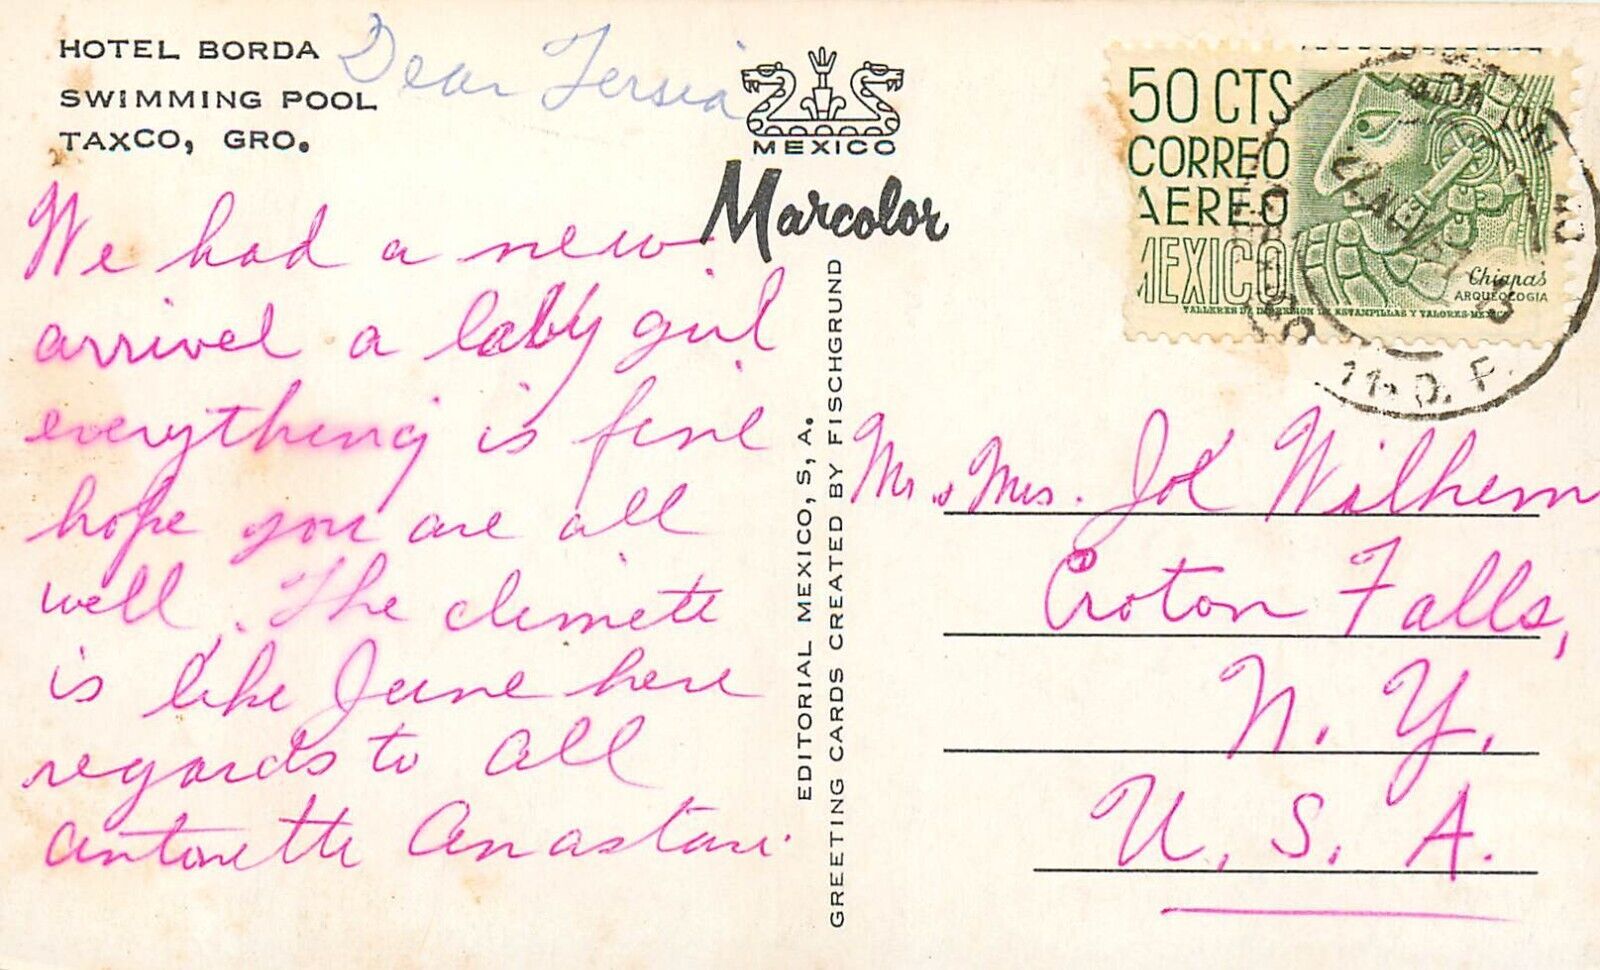 HOTEL BORDA
SWIMMING POOL
TAXCO, GRO.
Dear Tersia
We had a new
arrivel a baby girl
everything is fine
hope you are all
well. The climette
is like June here
regards to all
Antonette Anastasi.
MEXICO
Marcolor
EDITORIAL MEXICO, S, A.
GREETING CARDS CREATED BY FISCHGRUND
50 CTS
CORREO
AEREO
MEXICO
Chiapas
ARQUEOLOGIA
TALLERES DE IMPRESION DE ESTAMPILLAS Y VALORES-MEXICO
11, D. F.
Mr. & Mrs. Joe Wilhem
Croton Falls,
N. Y.
U. S. A.